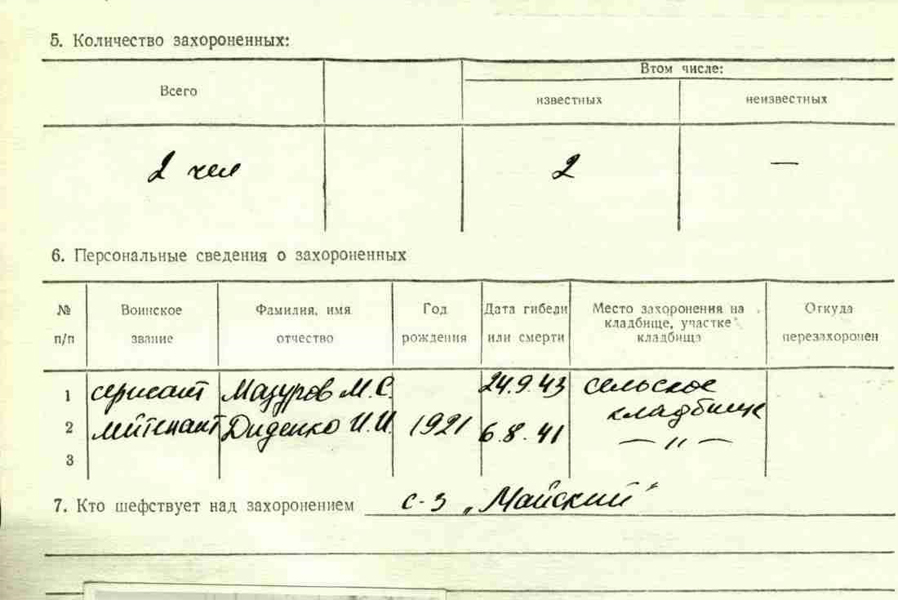 5. Количество захороненных:
Всего
Втом числе:
известных
неизвестных
2 чел
2
—
6. Персональные сведения о захороненных
№ п/п
Воинское звание
Фамилия, имя отчество
Год рождения
Дата гибели или смерти
Место захоронения на кладбище, участке кладбища
Откуда перезахоронен
1 сержант Мазуров М.С. 24.9.43 сельское кладбище
2 лейтенант Диденко И.И. 1921 6.8.41 — " —
3
7. Кто шефствует над захоронением с-з „Майский"